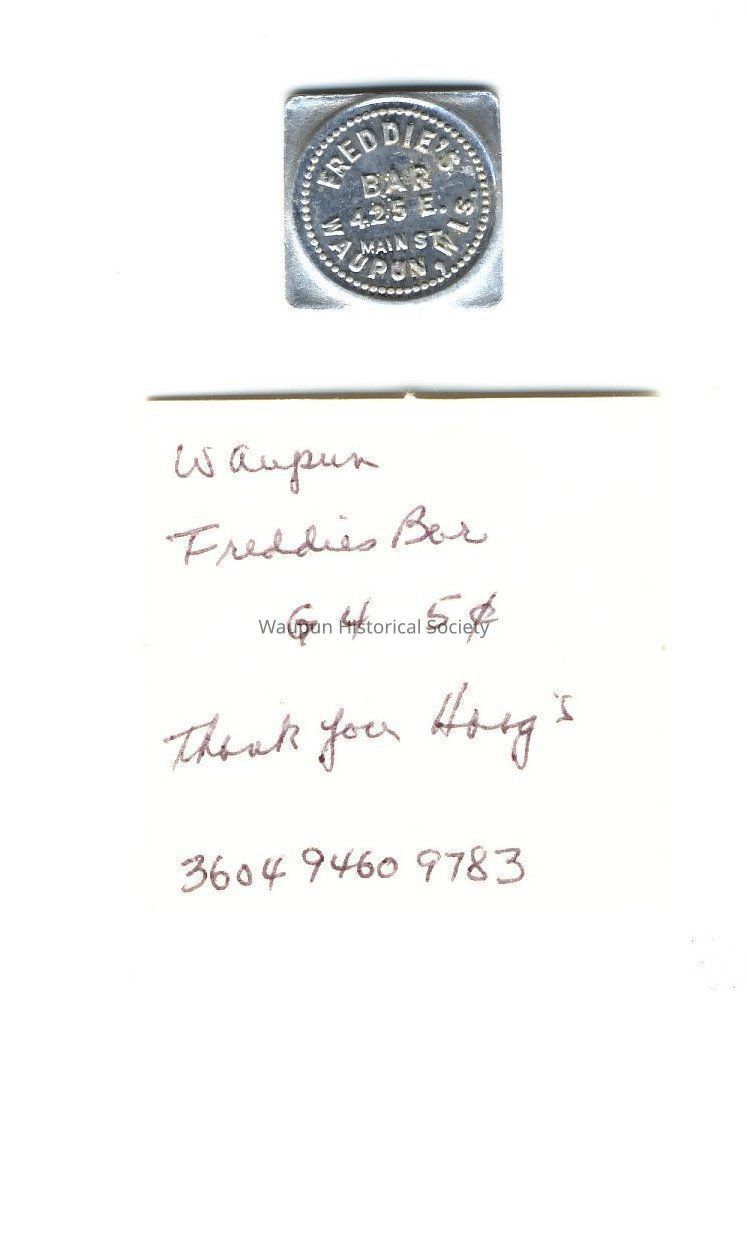 FREDDIE'S
BAR
425 E.
MAIN ST.
WAUPUN, WIS.
Waupun
Freddies Bar
G 4 5¢
Waupun Historical Society
Thank you
3604 9460 9783